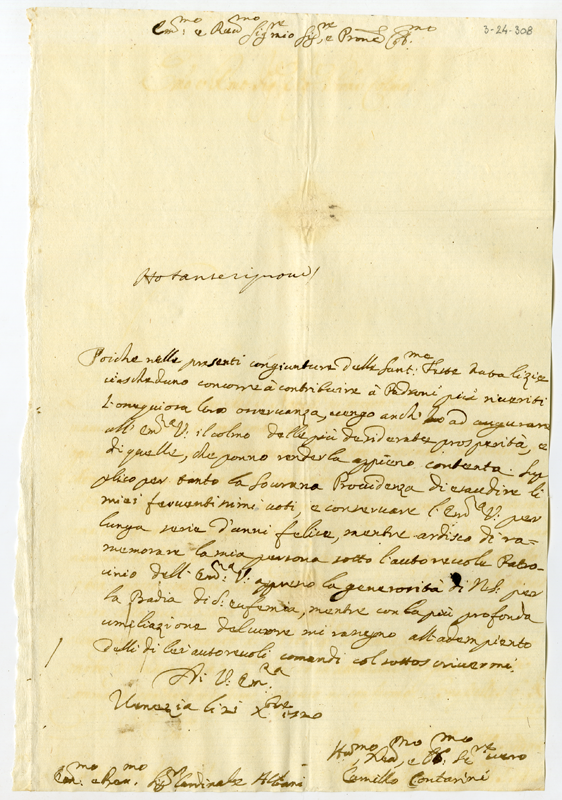 3-24-308
Em:mo e Reu:mo Sig:re mio Sig:re, e Prone Col:mo
Poiche nelle presenti congiunture delle Sant:me Feste Natalizie
ciascheduno concorre à contribuire à Padroni più riueriti
l'ossequiosa loro osseruanza, uengo anch'io ad augurare
all' Em:za V: il colmo delle più desiderate prosperità, e
di quelle, che ponno renderla appieno contenta. Sup
plico per tanto la Sourana Prouidenza di esaudire li
miei feruentissimi uoti, e conseruare l' Em:za V: per
lunga serie d'anni felice, mentre ardisco di ra=
memorare la mia persona sotto l'autoreuole Patro
cinio dell' Em:za V: appresso la generosità di NS: per
la Badia di S: Eufemia, mentre con la più profonda
umiliazione del cuore mi rasegno all'adempiento
delli di lei autoreuoli comandi col sottoscriuermi.
Di V: Em:za
Uenezia li Xbre
Hu:mo Deu:mo, e Ob:mo Se:re uero
Camillo Contarini
Em:mo e Reu:mo Sig:r Cardinale Albani